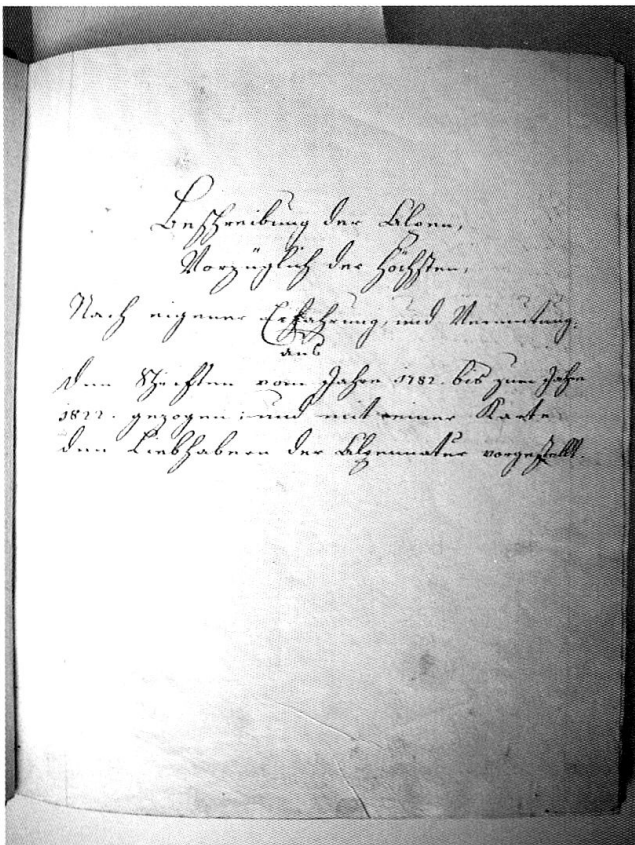 Beschreibung der Alpen,
Vorzüglich der Höchsten,
Nach eigener Erfahrung, und Vermutung;
aus
den Schriften vom Jahre 1782. bis zum Jahre
1822. gezogen; und mit einer Karte
den Liebhabern der Alpennatur vorgestellt.